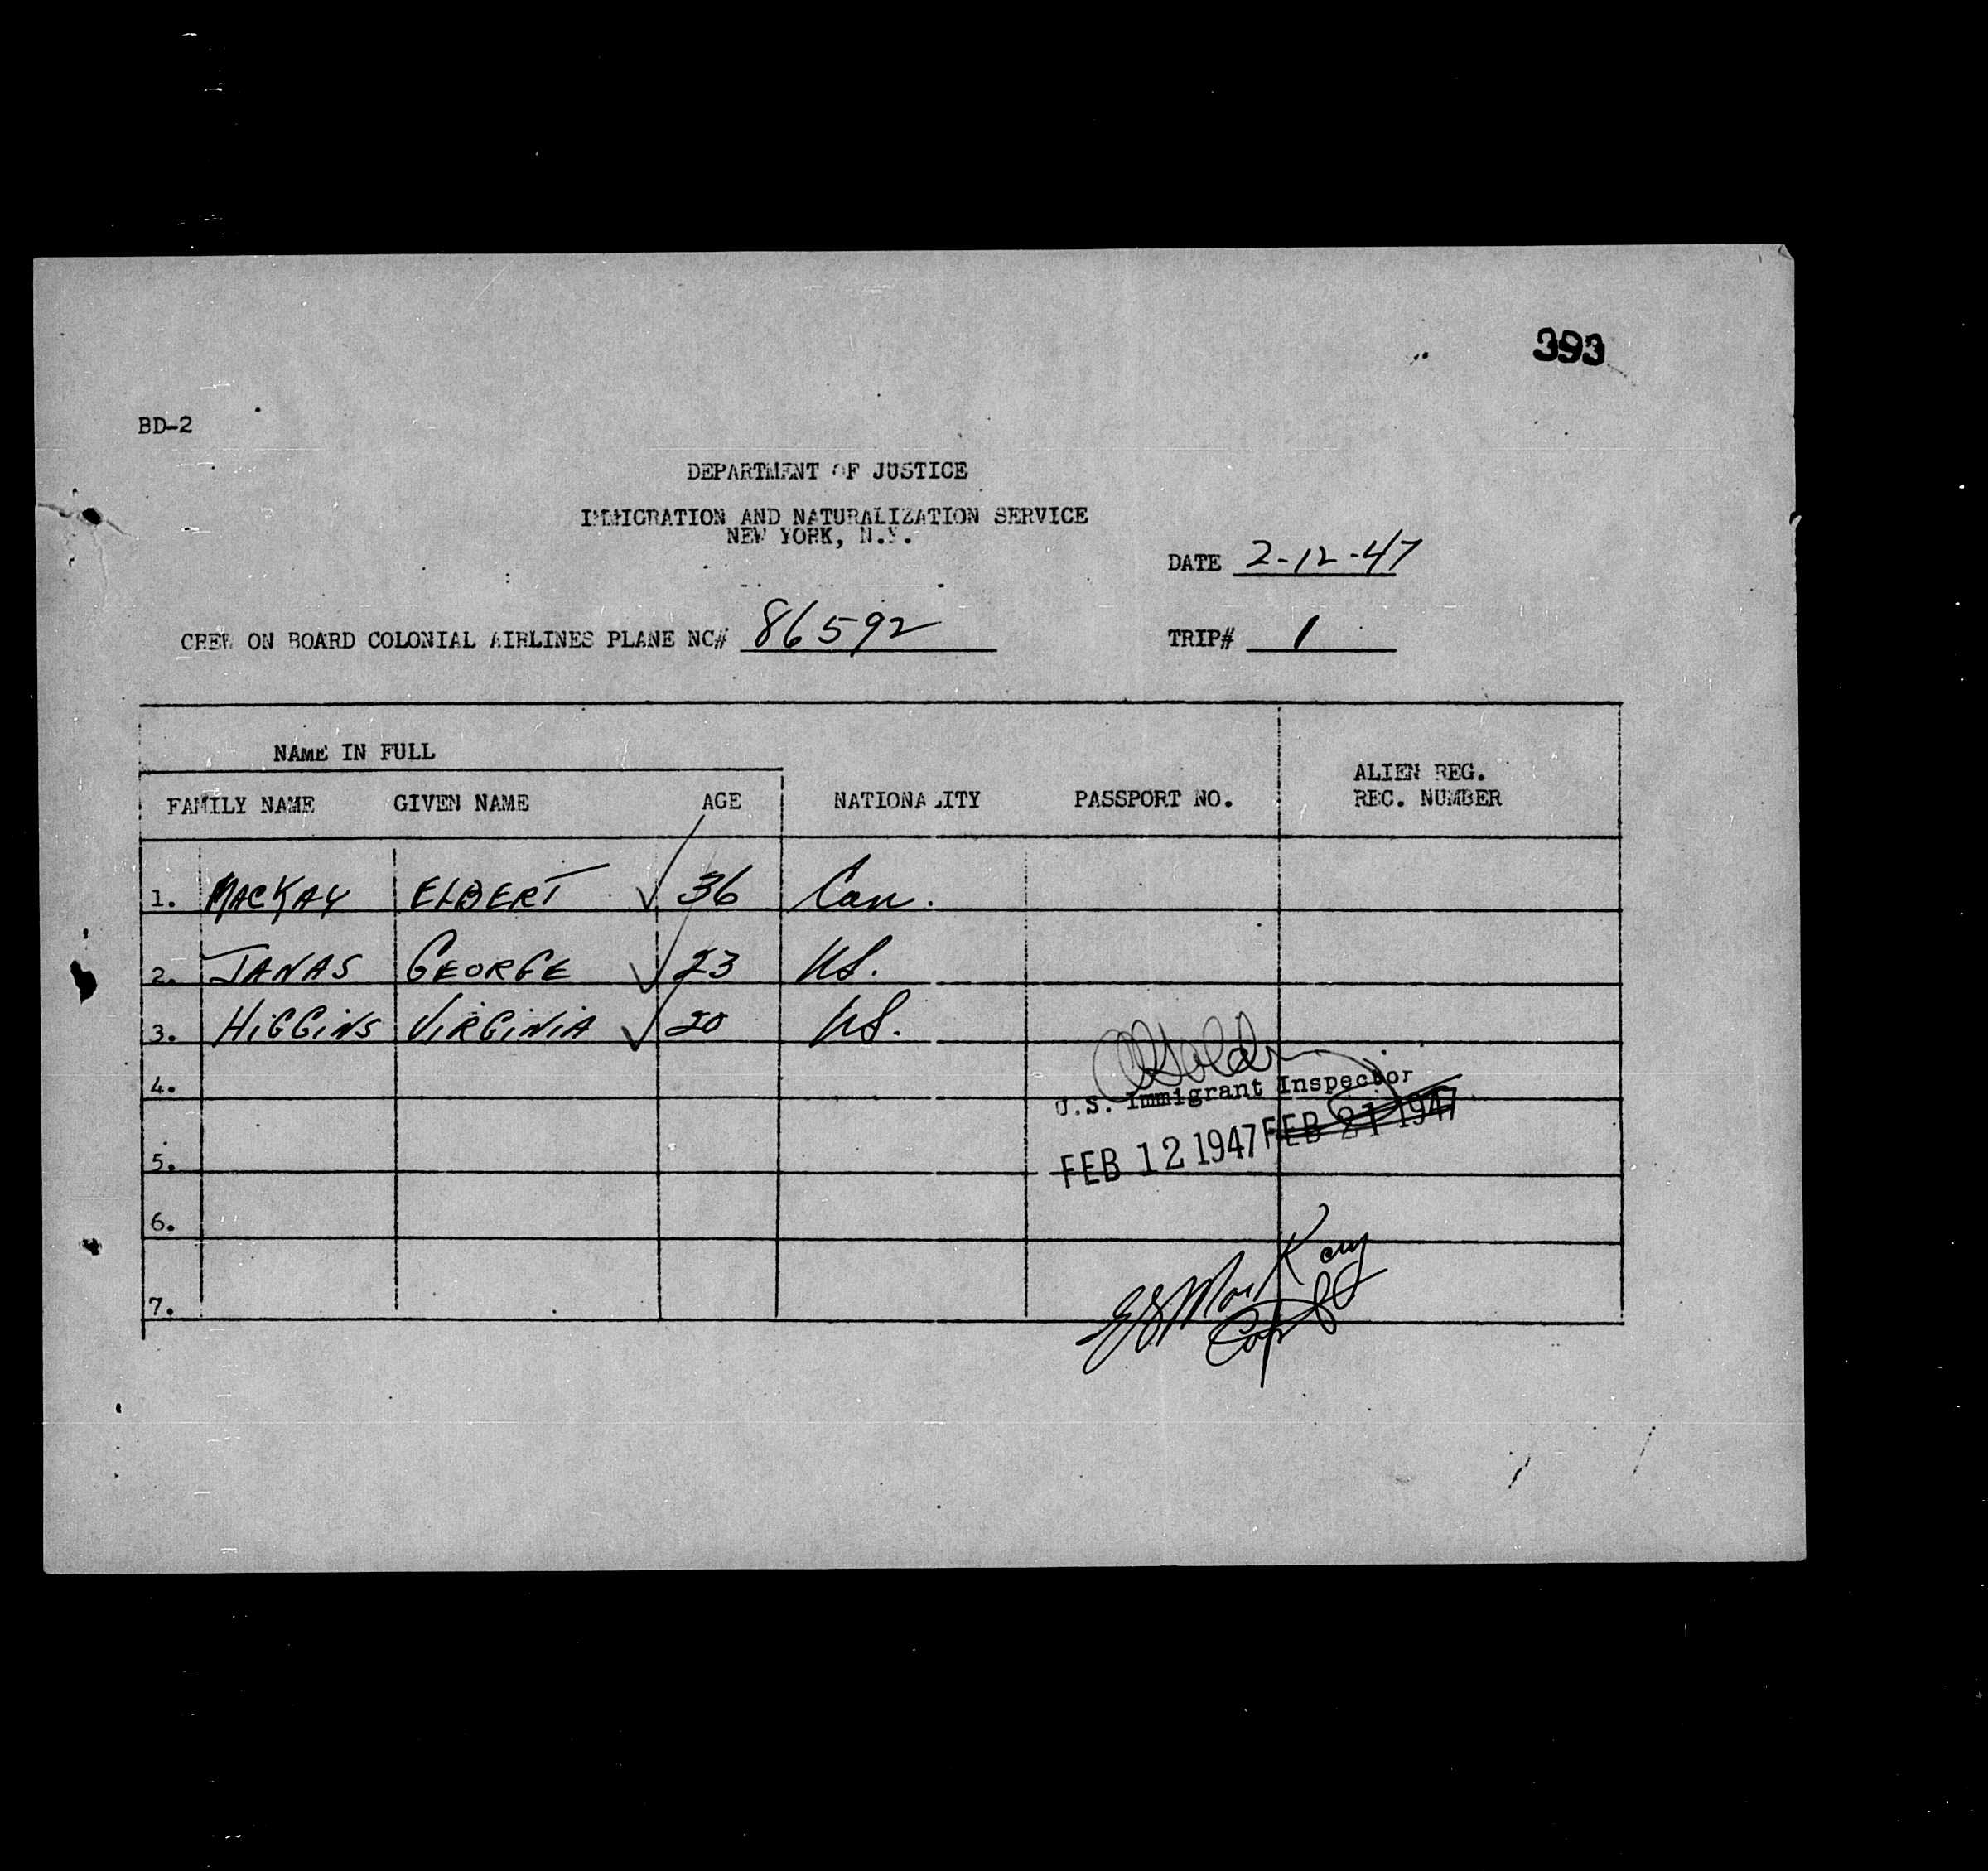 393
BD-2
DEPARTMENT OF JUSTICE
IMMIGRATION AND NATURALIZATION SERVICE
NEW YORK, N.Y.
DATE 2-12-47
CREW ON BOARD COLONIAL AIRLINES PLANE NC# 86592 TRIP# 1
NAME IN FULL
ALIEN REG.
FAMILY NAME GIVEN NAME AGE NATIONALITY PASSPORT NO. REC. NUMBER
1. MACKAY ELBERT ✓ 36 Can.
2. JANAS GEORGE ✓ 23 US.
3. HIGGINS VIRGINIA ✓ 20 US.
4.
U.S. Immigrant Inspector
FEB 12 1947 FEB 21 1947
5.
6.
7.
MacKay
Capt